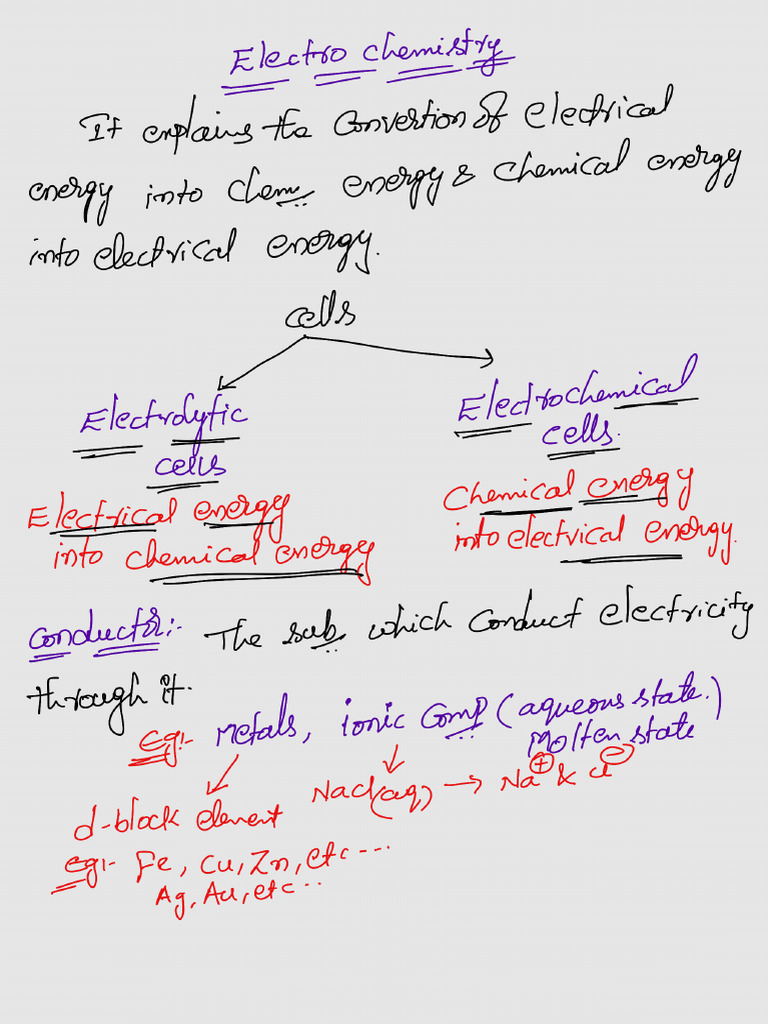 Electro chemistry
It explains the Convertion of electrical
energy into Chem energy & chemical energy
into electrical energy.
cells
Electrolytic
cells
Electrical energy
into chemical energy
Electrochemical
cells.
Chemical energy
into electrical energy.
Conductor:- The sub which Conduct electricity
through it.
Eg:- Metals, ionic Comp (aqueous state.)
Molten state
d-block element
NaCl(aq) → Na⊕ & Cl⊖
eg:- Fe, Cu, Zn, etc ---
Ag, Au, etc ...